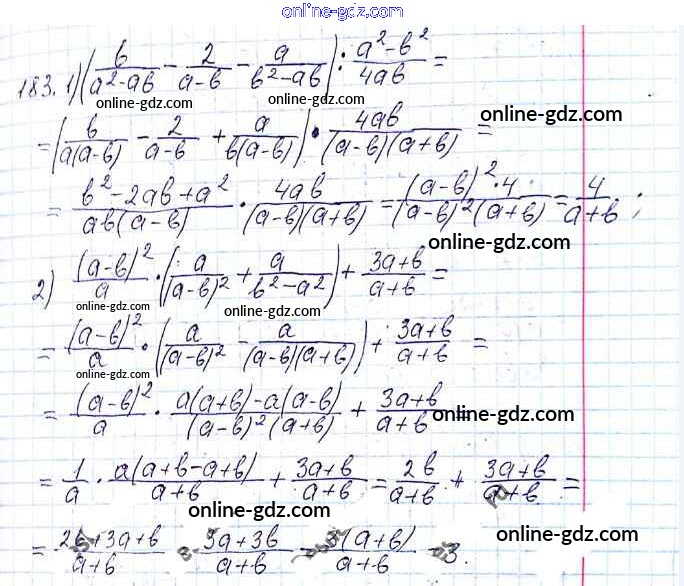 online-gdz.com
183. 1) (b/(a²-ab) - 2/(a-b) - a/(b²-ab)) : (a²-b²)/(4ab) =
online-gdz.com online-gdz.com online-gdz.com
= (b/(a(a-b)) - 2/(a-b) + a/(b(a-b))) • 4ab/((a-b)(a+b)) =
= (b²-2ab+a²)/(ab(a-b)) · 4ab/((a-b)(a+b)) = ((a-b)²·4)/((a-b)²(a+b)) = 4/(a+b);
online-gdz.com
2) (a-b)²/a · (a/(a-b)² + a/(b²-a²)) + (3a+b)/(a+b) =
online-gdz.com online-gdz.com
= (a-b)²/a · (a/(a-b)² - a/((a-b)(a+b))) + (3a+b)/(a+b) =
online-gdz.com
= (a-b)²/a · (a(a+b)-a(a-b))/((a-b)²(a+b)) + (3a+b)/(a+b) =
online-gdz.com
= 1/a · a(a+b-a+b)/(a+b) + (3a+b)/(a+b) = 2b/(a+b) + (3a+b)/(a+b) =
online-gdz.com
= (2b+3a+b)/(a+b) = (3a+3b)/(a+b) = 3(a+b)/(a+b) = 3.
online-gdz.com